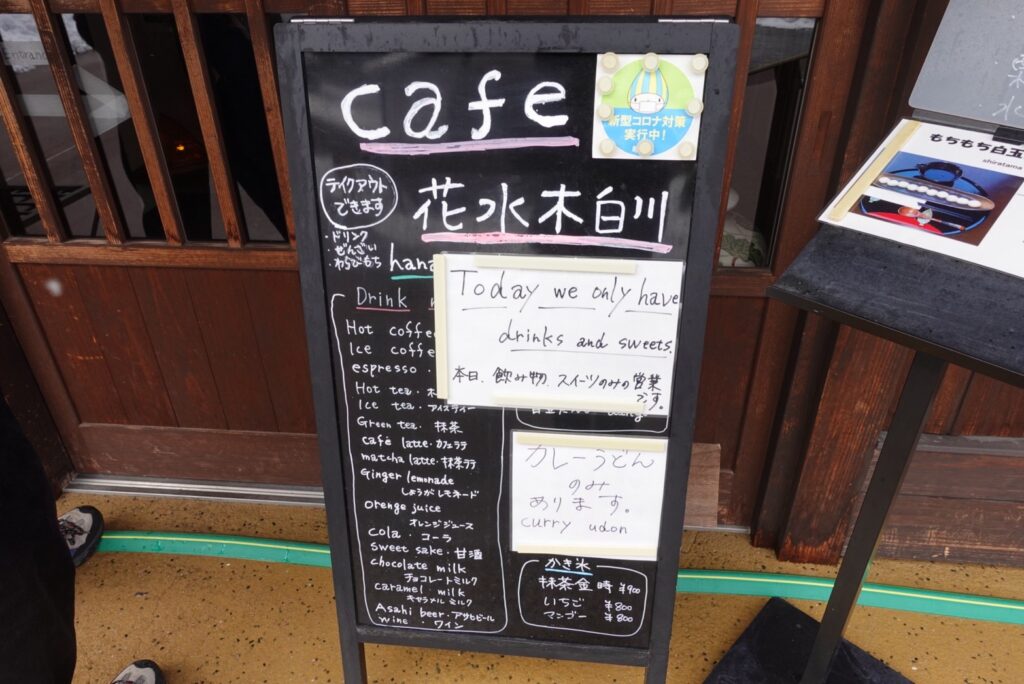 cafe
新型コロナ対策
実行中！
テイクアウト
できます
・ドリンク
・ぜんざい
・わらびもち
花水木白川
hana
Today we only have
drinks and sweets.
本日、飲み物、スイーツのみの営業
です。
Drink
Hot coffe
Ice coffe
espresso ・
Hot tea ・
Ice tea ・アイスティー
Green tea ・ 抹茶
café latte・カフェラテ
matcha latte・抹茶ラテ
Ginger lemonade
しょうがレモネード
orenge juice
オレンジジュース
cola ・ コーラ
sweet sake・甘酒
chocolate milk
チョコレートミルク
caramel milk
キャラメルミルク
Asahi beer・アサヒビール
wine ・ ワイン
カレーうどん
のみ
あります。
curry udon
かき氷
抹茶金時 ¥900
いちご ¥800
マンゴー ¥800
もちもち白玉
shiratama
entran